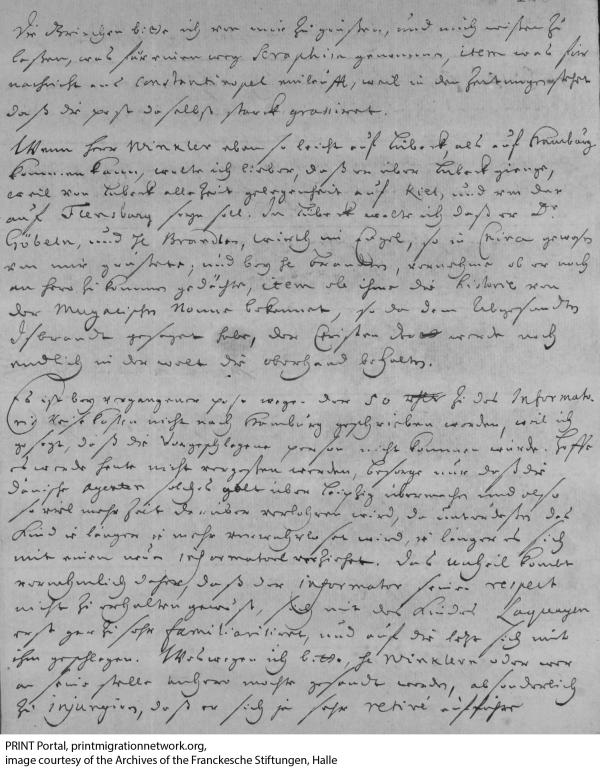 Die Griechen bitte ich von mir zu grüßen, und mich wissen zu
lassen, was für einen weg Seraphim genommen, item was für
nachricht aus Constantinopel einläufft, weil in den Zeitungen stehet
daß die pest daselbst starck grassiret.
Wenn Herr Winkler eben so leicht auf Lübeck, als auf Hamburg
kommen kann, wolte ich lieber, daß er über Lübeck gienge,
weil von Lübeck alle Zeit gelegenheit auf Kiel, und von dar
auf Flensburg seyn soll. In Lübeck wolte ich daß er Dr.
und H. Brandten, wirth im Engel, so in China gewesen
von mir grüßete, und bey H. Brandten, vernehme ob er noch
an hero zu kommen gedächte, item ob ihme die historie von
der Nonne bekannt, so da dem Abgesandten
Isbrandt gesaget habe, der Christen werde noch
endlich in der welt die oberhand behalten.
Es ist bey vergangener post wegen der 50 zu des Informato-
ris Reisekosten nicht nach Hamburg geschrieben worden, weil ich
gesagt, daß die vorgeschlagene person nicht kommen würde. Hoffe
es werde heute nicht vergessen werden, besorge nur daß die
dänische solches gelt über Leipzig übermache und also
so viel mehr Zeit darüber verlohren wird, da unterdessen das
Kind je länger je mehr verwahrloset wird, je länger es sich
mit einem neuen Informatore verziehet. Das unheil kombt
vornehmlich daher, daß der Informator seinen respect
nicht zu erhalten gewust, sich mit des Kindes Laquayen
erst gar zu sehr familiarisiret, und auf die letzt sich mit
ihm geschlagen. Weswegen ich bitte, H. Winklern oder wer
an seine stelle anhero mochte gesandt werden, absonderlich
zu injungiren, daß er sich ja sehr retiré aufführe
PRINT Portal, printmigrationnetwork.org,
image courtesy of the Archives of the Franckesche Stiftungen, Halle